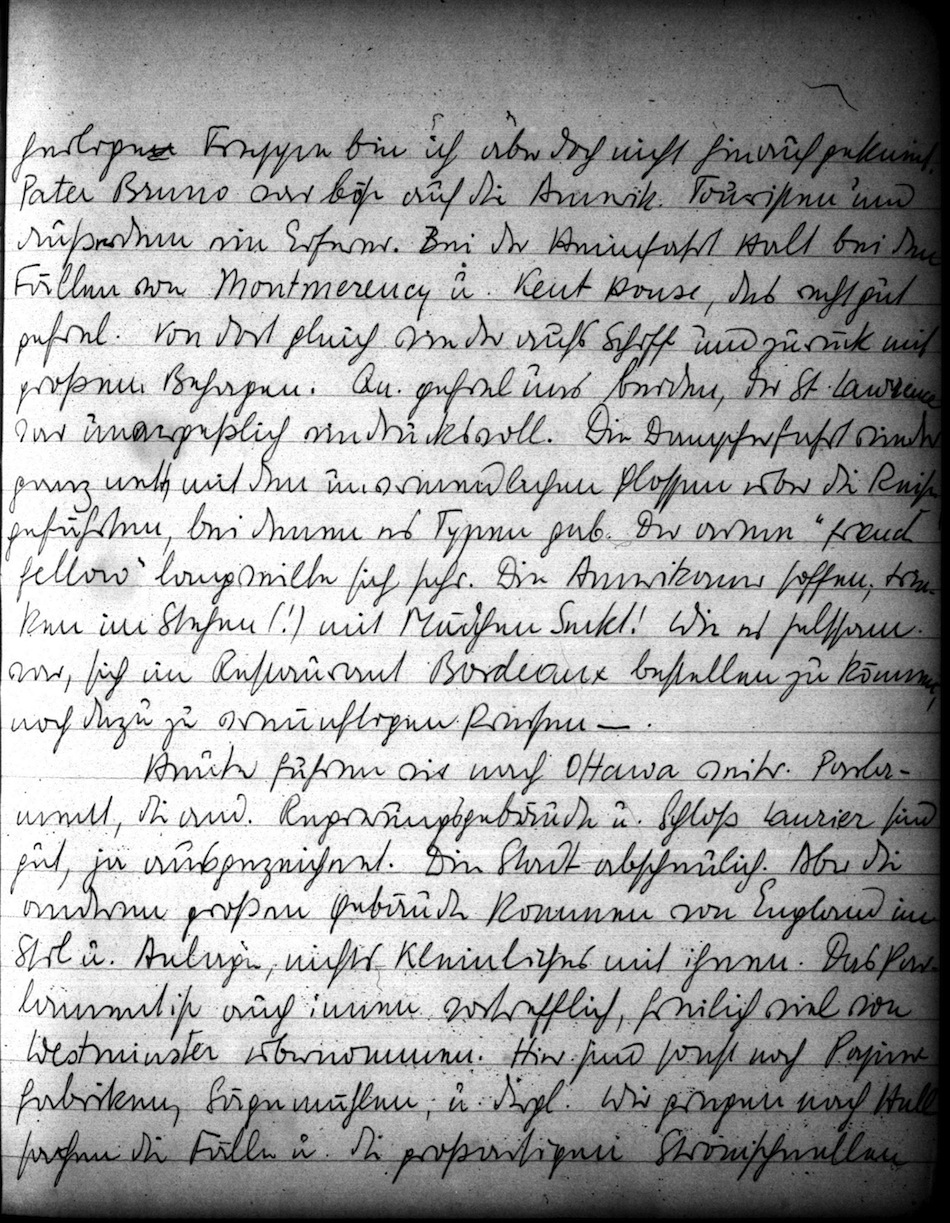 heiligen Treppe bin ich aber doch nicht hinaufgekniet.
Pater Bruno war bös auf die Amerik. Touristen und
außerdem ein Eiferer. Bei der Heimfahrt Halt bei den
Fällen von Montmerency u. Kent House, das recht gut
gefiel. Von dort gleich wieder aufs Schiff und zurück mit
großem Behagen. Qu. gefiel uns beiden, der St. Lawrence
war unvergeßlich eindrucksvoll. Die Dampferfahrt wieder
ganz nett mit den unvermeidlichen Glossen über die Reise
gefährten, bei denen es Typen gab. Der arme "freud
fellow" langweilte sich sehr. Die Amerikaner soffen, trin-
ken im Stehen (!) mit Mädchen Sekt! Wie es seltsam
war, sich im Restaurant Bordeaux bestellen zu können,
noch dazu zu vernünftigen Preisen —.
Heute fuhren wir nach Ottawa weiter. Parla-
ment, die and. Regierungsgebäude u. Schloß Laurier sind
gut, ja ausgezeichnet. Die Stadt abscheulich. Aber die
anderen großen Gebäude kommen von England im
Stil u. Anlage, nichts Kleinliches mit ihnen. Das Par-
lament ist auch innen vortrefflich, freilich viel von
Westminster übernommen. Hier sind sonst noch Papier
fabriken, Sägemühlen, u. dergl. Wir gingen nach Hull
sahen die Fälle u. die großartigen Stromschnellen